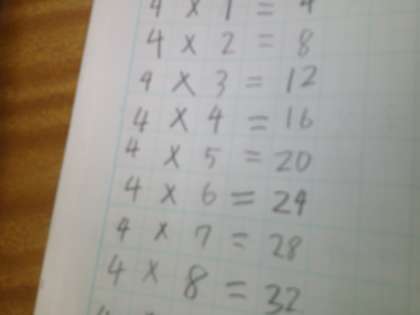 4 × 1 = 4
4 × 2 = 8
4 × 3 = 12
4 × 4 = 16
4 × 5 = 20
4 × 6 = 24
4 × 7 = 28
4 × 8 = 32